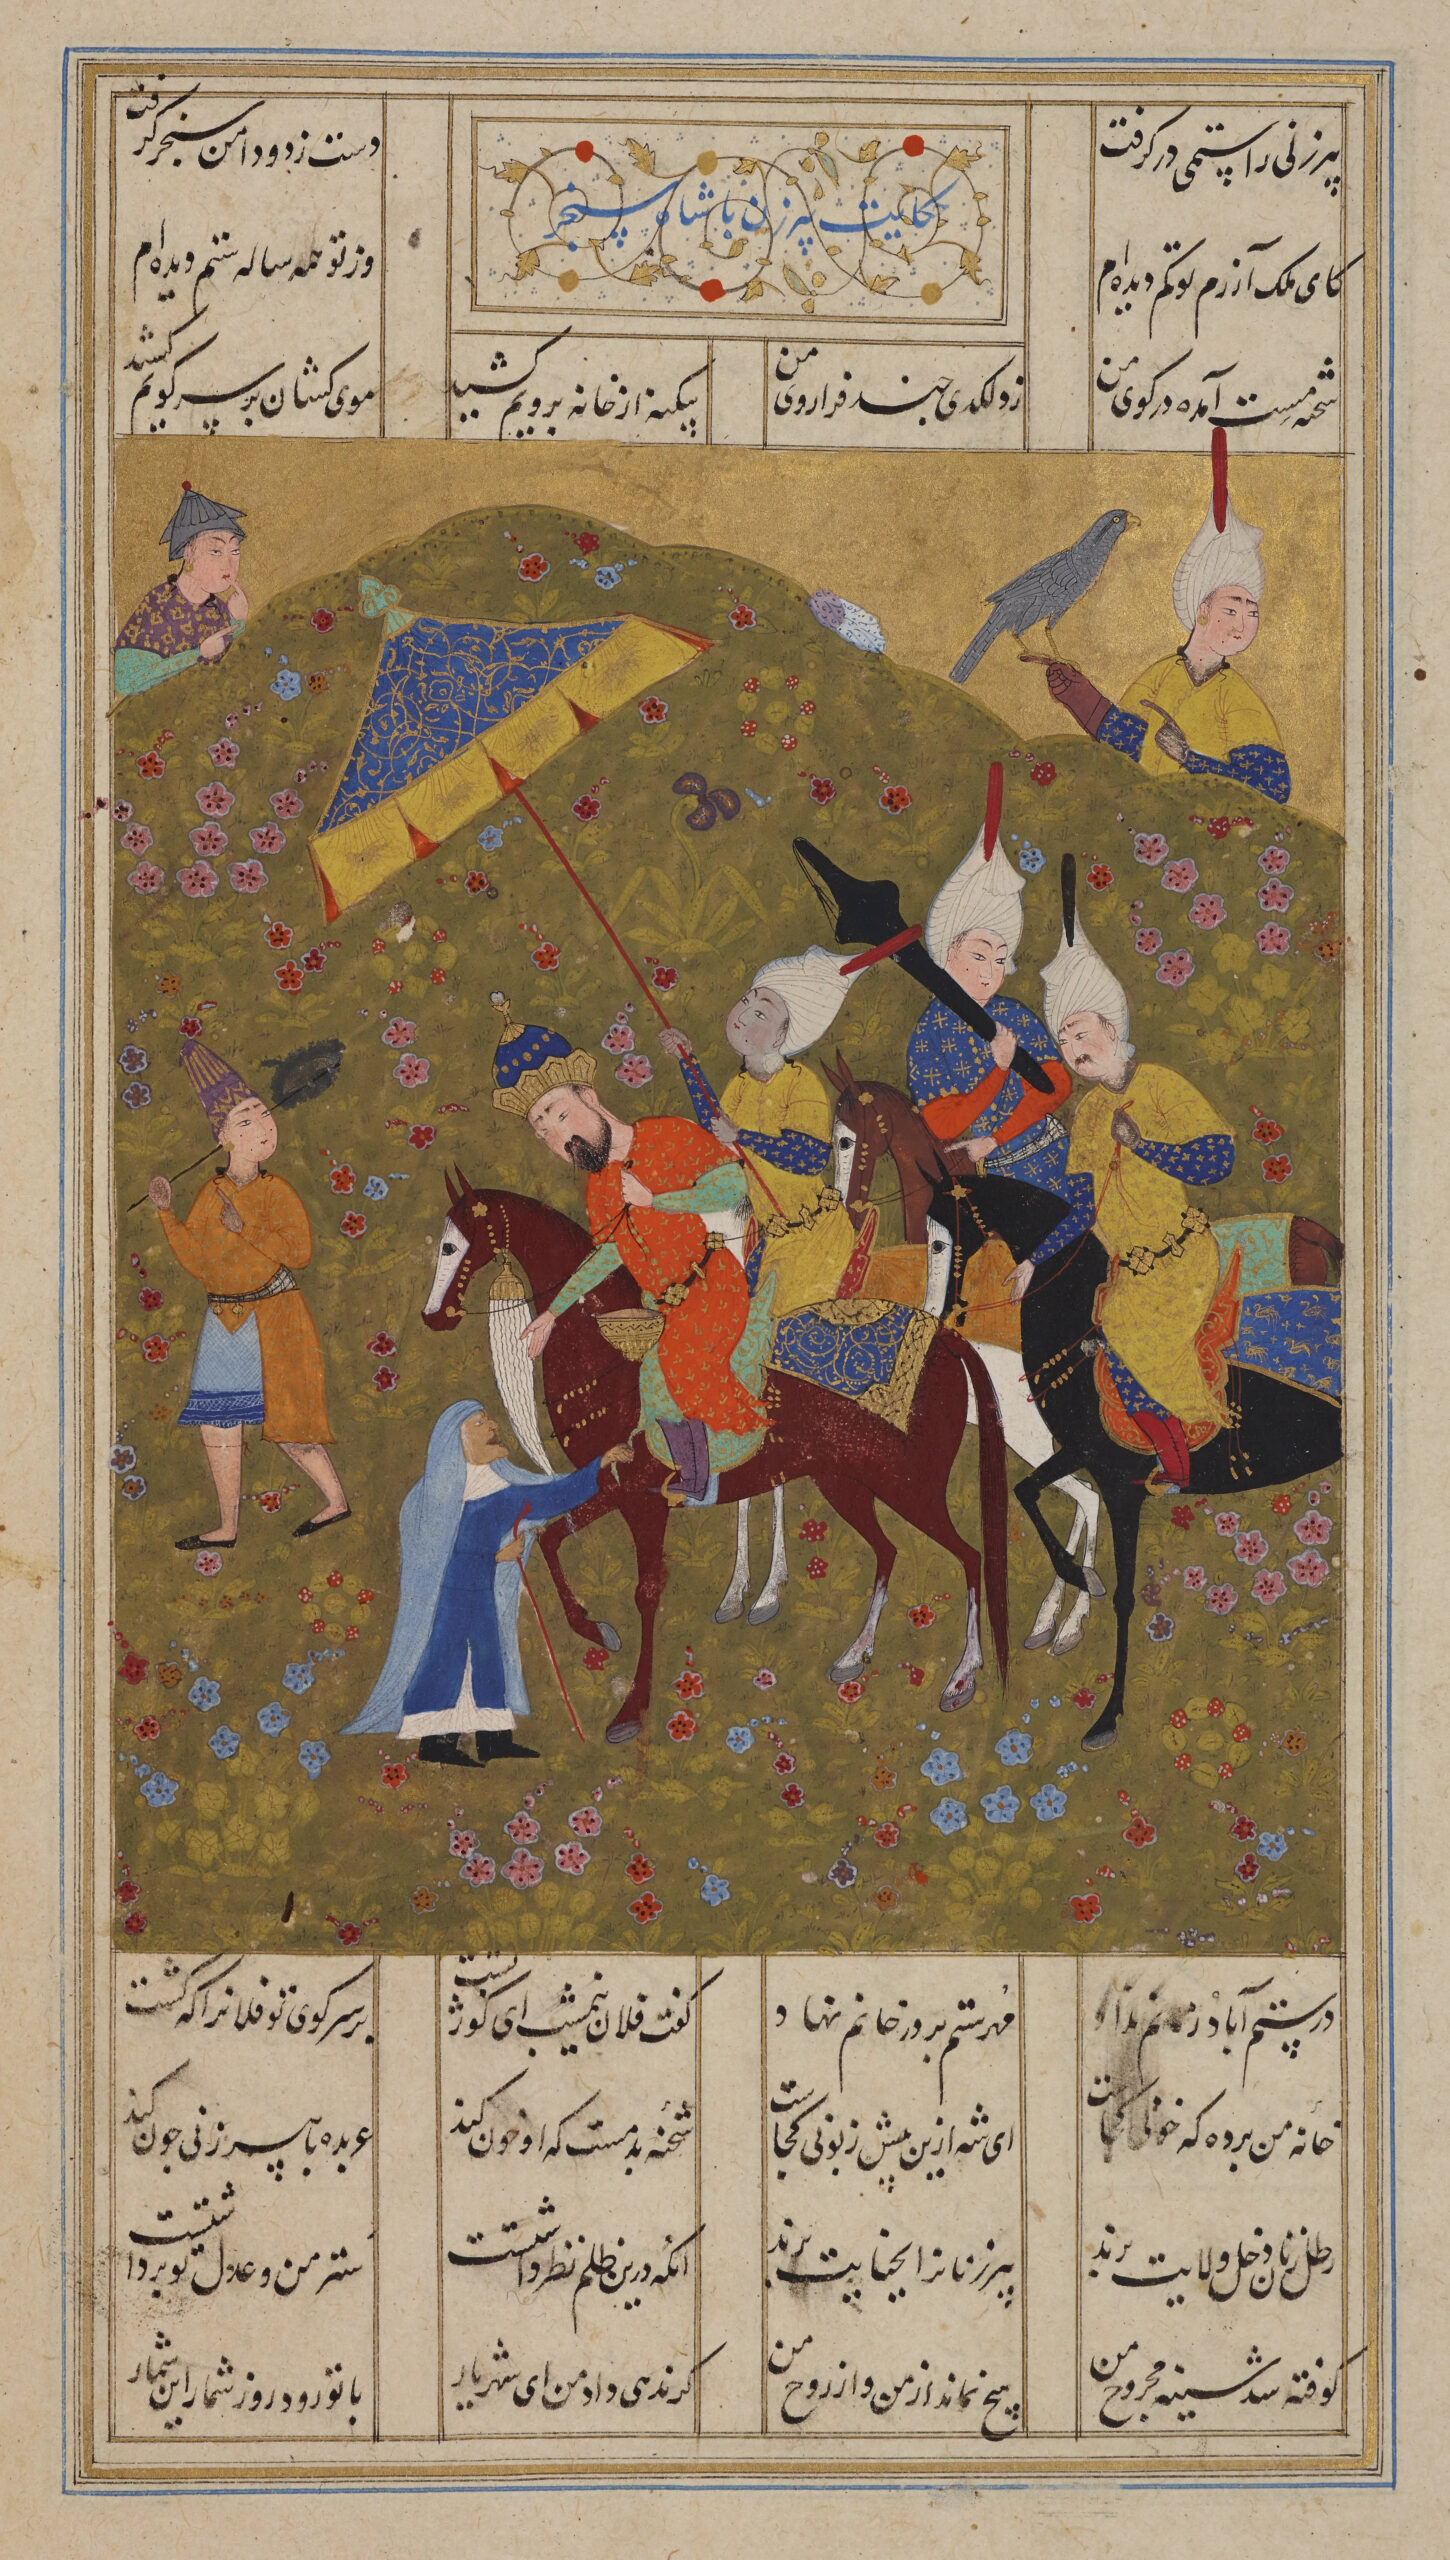 پیرزنی را ستمی درگرفت
حکایت پیرزن با شاه سنجر
دست زد و دامن سنجر گرفت
کای ملک آزرم تو کم دیده‌ام
وز تو همه ساله ستم دیده‌ام
شحنه مست آمده در کوی من
زد لگدی چند فرا روی من
بیگنه از خانه برویم کشید
موی کشان بر سر کویم کشید
در ستم آباد
مهر ستم بر در خانم نهاد
گفت فلان نیمشب ای کوژ پشت
بر سر کوی تو فلانرا که کشت
خانه من برده که خونی کجاست
ای شه ازین بیش زبونی کجاست
شحنه بد مست که او خون کند
عربده با پیرزنی چون کند
رطل زنان دخل ولایت برند
پیرزنانرا بجنایت برند
آنکه درین ظلم نظر داشتست
ستر من و عدل تو برداشتست
کوفته شد سینه مجروح من
هیچ نماند از من و از روح من
گر ندهی داد من ای شهریار
با تو رود روز شمار این شمار